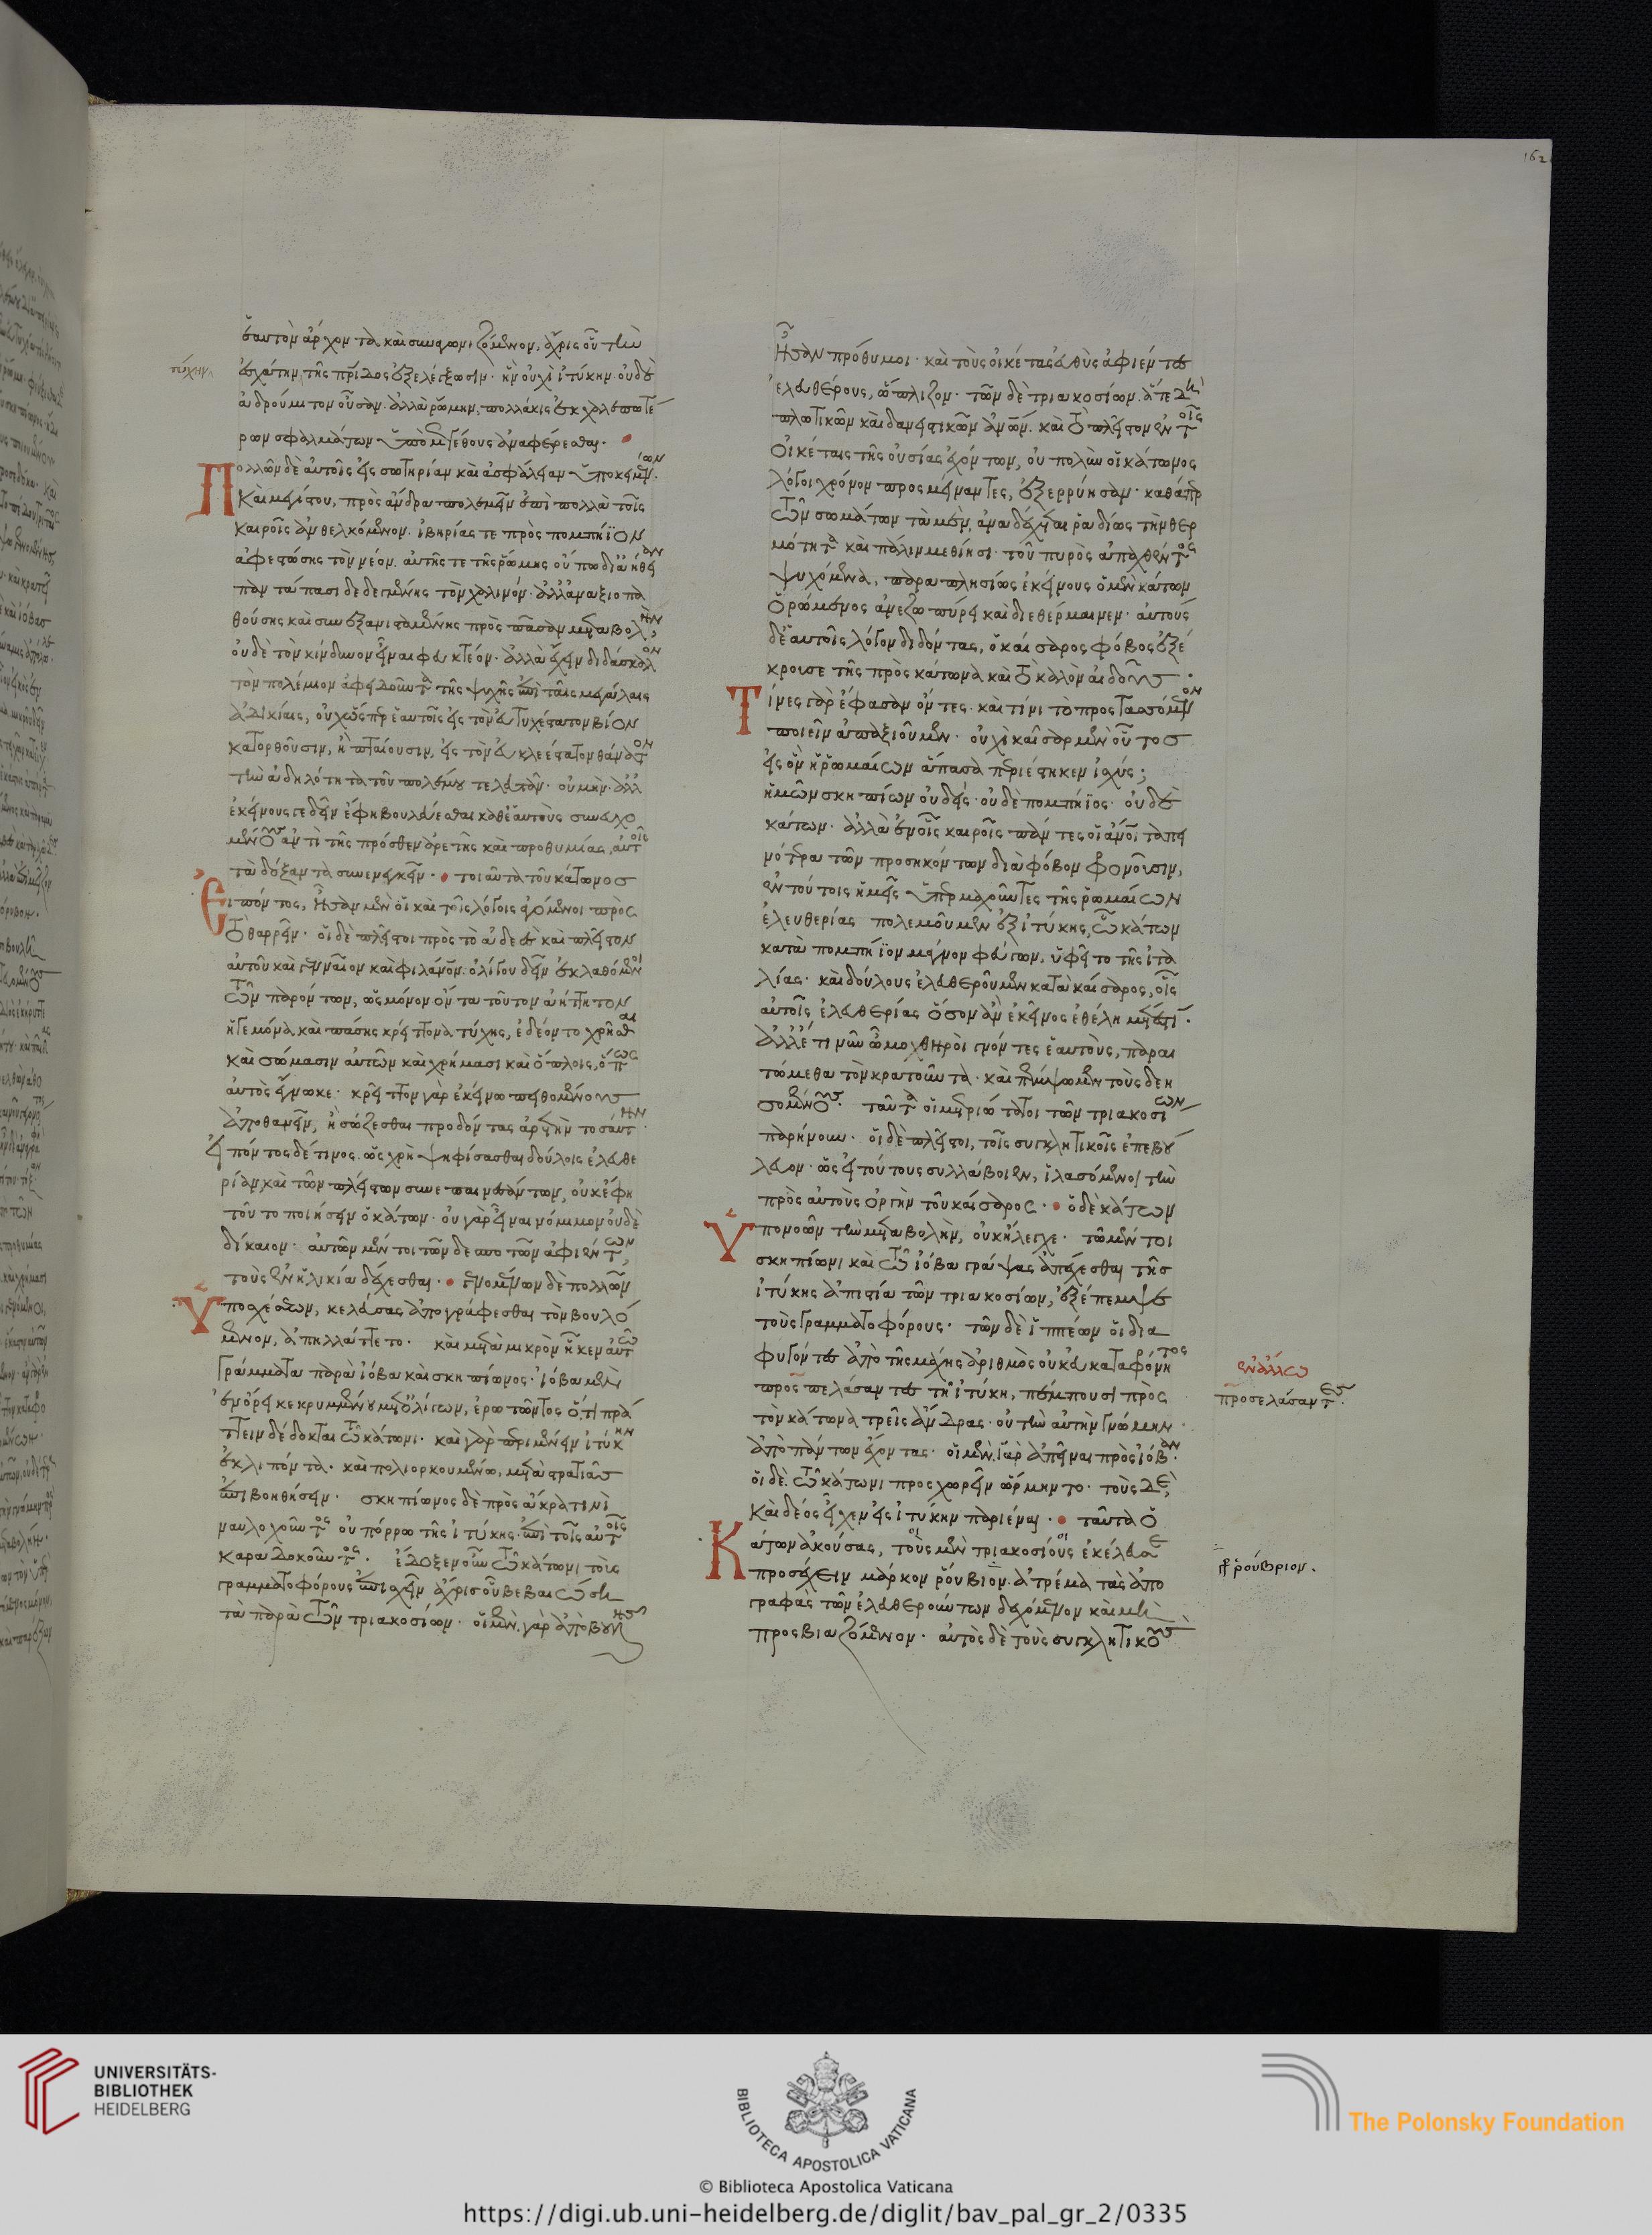 ἑαυτὸν ἄρχοντα καὶ συναγωνιζόμενον, ἄχρις οὗ τὴν
τύχην
ἐσχάτην τῆς πατρίδος ἐξελέγξωσιν· ἣν οὐχὶ ἰτύκην· οὐδὲ
ἀδρούμιτον οὖσαν· ἀλλὰ ῥώμην, πολλάκις ἐκ χαλεπωτέ
ρων σφαλμάτων ὑπὸ μεγέθους ἀναφέρεσθαι·
Πολλῶν δὲ αὐτοῖς εἰς σωτηρίαν καὶ ἀσφάλειαν ὑποκειμένων·
Καὶ μεγίστου, πρὸς ἄνδρα πολεμεῖν ἐπὶ πολλὰ τοῖς
καιροῖς ἀνθελκόμενον· ἰβηρίας τε πρὸς πομπήϊον
ἀφεστώσης τὸν νέον· αὐτῆς τε τῆς ῥώμης οὔπω διἀήθειαν
παντάπασι δεδεγμένης τὸν χαλινόν· ἀλλἀναξιοπα
θούσης καὶ συνεξανισταμένης πρὸς πᾶσαν μεταβολήν,
οὐδὲ τὸν κίνδυνον εἶναι φευκτέον· ἀλλὰ ἔχειν διδάσκαλον
τὸν πολέμιον ἀφειδοῦντα τῆς ψυχῆς ἐπὶ ταῖς μεγάλαις
ἀδικίαις, οὐχ ὥσπερ ἑαυτοῖς εἰς τὸν εὐτυχέστατον βίον
κατορθοῦσιν, ἢ πταίουσιν, εἰς τὸν εὐκλεέστατον θάνατον
τὴν ἀδηλότητα τοῦ πολέμου τελευτᾶν· οὐ μὴν ἀλλ
ἐκείνους γε δεῖν ἔφη βουλεύεσθαι καθἑαυτοὺς συνευχό
μενος ἀντὶ τῆς πρόσθεν ἀρετῆς καὶ προθυμίας, αὐτοῖς
τὰ δόξαντα συνενεγκεῖν· τοιαῦτα τοῦ κάτωνος
Εἰπόντος, ἦσαν μὲν οἳ καὶ τοῖς λόγοις ἀγόμενοι πρὸς
τὸ θαρρεῖν· οἱ δὲ πλεῖστοι πρὸς τὸ ἀδεὲς καὶ πλεῖστον
αὐτοῦ καὶ γενναῖον καὶ φιλάνθρωπον· ὀλίγου δεῖν ἐκλαθόμενοι
τῶν παρόντων, ὡς μόνον ὄντα τοῦτον ἀήττητον
ἡγεμόνα καὶ πάσης κρείττονα τύχης, ἐδέοντο χρῆσθαι
καὶ σώμασιν αὐτῶν καὶ χρήμασι καὶ ὅπλοις, ὅπως
αὐτὸς ἔγνωκε· κρεῖττον γὰρ ἐκείνω πειθομένους
ἀποθανεῖν, ἢ σώζεσθαι προδόντας ἀρετὴν τοσαύτην·
Εἰπόντος δέ τινος· ὡς χρὴ ψηφίσασθαι δούλοις ἐλευθε
ρίαν καὶ τῶν πλείστων συνεπαινεσάντων, οὐκ ἔφη
τοῦτο ποιήσειν ὁ κάτων· οὐ γὰρ εἶναι νόμιμον οὐδὲ
δίκαιον· αὐτῶν μέντοι τῶν δεσποτῶν ἀφιέντων,
τοὺς ἐν ἡλικία δέχεσθαι· γενομένων δὲ πολλῶν
Ὑποσχέσεων, κελεύσας ἀπογράφεσθαι τὸν βουλό
μενον, ἀπηλλάττετο· καὶ μετὰ μικρὸν ἧκεν αὐτῶ
Γράμματα παρὰ ἰόβα καὶ σκηπίωνος· ἰόβα μὲν
ἐν ὄρει κεκρυμμένου μετὀλίγων, ἐρωτῶντος ὅ,τι πρά
ττειν δέδοκται τῶ κάτωνι· καὶ γὰρ περιμένειν ἰτύκην
ἐκλιπόντα· καὶ πολιορκουμένω, μετὰ στρατιᾶς
ἐπιβοηθήσειν· σκηπίωνος δὲ πρὸς ἄκρα τινὶ
ναυλοχοῦντος οὐ πόρρω τῆς ἰτύκης· ἐπὶ τοῖς αὐτοῖς
καραδοκοῦντος· ἔδοξεν οὖν τῶ κάτωνι τοὺς
γραμματοφόρους ἐπισχεῖν ἄχρις οὗ βεβαιώση
τὰ παρὰ τῶν τριακοσίων· οἱ μὲν γὰρ ἀπὸ βουλῆς
162
Ἦσαν πρόθυμοι· καὶ τοὺς οἰκέτας εὐθὺς ἀφιέντες
ἐλευθέρους, ὥπλιζον· τῶν δὲ τριακοσίων· ἅτε δὴ
πλωτικῶν καὶ δανειστικῶν ἀνθρώπων· καὶ τὸ πλεῖστον ἐν τοῖς
Οἰκέταις τῆς οὐσίας ἐχόντων, οὐ πολὺν οἱ κάτωνος
λόγοι χρόνον προσμείναντες, ἐξερρύησαν· καθάπερ
τῶν σωμάτων τὰ μὲν, ἀναδέχεται ῥαδίως τὴν θερ
μότητα καὶ πάλιν μεθίησι· τοῦ πυρὸς ἀπαχθέντος
ψυχόμενα, παραπλησίως ἐκείνους ὁ μὲν κάτων
Ὁρώμενος ἀνεζωπύρει καὶ διεθέρμαινεν· αὐτοὺς
δὲ ἑαυτοῖς λόγον διδόντας, ὁ καίσαρος φόβος ἐξέ
κρουσε τῆς πρὸς κάτωνα καὶ τὸ καλὸν αἰδοῦς·
Τίνες γὰρ ἔφασαν ὄντες· καὶ τίνι τὸ προστασσόμενον
ποιεῖν ἀπαξιοῦμεν· οὐχὶ καῖσαρ μὲν οὗτος
εἰς ὃν ἡ ῥωμαίων ἅπασα περιέστηκεν ἰσχύς;
ἡμῶν σκηπίων οὐδείς· οὐδὲ πομπήϊος· οὐδὲ
κάτων· ἀλλὰ ἐν οἷς καιροῖς πάντες οἱ ἄνθρωποι ταπει
νότερα τῶν προσηκόντων διὰ φόβον φρονοῦσιν,
ἐν τούτοις ἡμεῖς ὑπερμαχοῦντες τῆς ῥωμαίων
ἐλευθερίας πολεμοῦμεν ἐξ ἰτύκης, ὧ κάτων
κατὰ πομπήϊον μάγνον φεύγων, ὑφεῖτο τῆς ἰτα
λίας· καὶ δούλους ἐλευθεροῦμεν κατὰ καίσαρος, οἷς
αὐτοῖς ἐλευθερίας ὅσον ἂν ἐκεῖνος ἐθέλη μέτεστι·
ἀλλἔτι νῦν ὦ μοχθηροὶ γνόντες ἑαυτοὺς, παραι
τώμεθα τὸν κρατοῦντα· καὶ πέμψωμεν τοὺς δεη
σομένους· ταῦτα οἱ μετριώτατοι τῶν τριακοσίων
παρήνουν· οἱ δὲ πλεῖστοι, τοῖς συγκλητικοῖς ἐπεβού
λευον· ὡς εἰ τούτους συλλάβοιεν, ἱλασόμενοι τὴν
πρὸς αὐτοὺς ὀργὴν τοῦ καίσαρος· ὁ δὲ κάτων
Ὑπονοῶν τὴν μεταβολὴν, οὐκ ἤλεγχε· τῶ μέντοι
σκηπίωνι καὶ τῶ ἰόβα γράψας ἀπέχεσθαι τῆς
ἰτύκης ἀπιστία τῶν τριακοσίων, ἐξέπεμψε
τοὺς Γραμματοφόρους· τῶν δὲ ἱππέων οἱ δια
φυγόντες ἀπὸ τῆς μάχης ἀριθμὸς οὐκ εὐκαταφρόνητος
προσπελάσαντες τῆ ἰτύκη, πέμπουσι πρὸς
ἐν ἄλλω
προσελάσαντες·
τὸν κάτωνα τρεῖς ἄνδρας· οὐ τὴν αὐτὴν Γνώμην
ἀπὸ πάντων ἔχοντας· οἱ μὲν γὰρ ἀπεῖναι πρὸς ἰόβαν·
οἱ δὲ τῶ κάτωνι προσχωρεῖν ὥρμηντο· τοὺς δὲ,
Καὶ δέος εἶχεν εἰς ἰτύκην παριέναι· ταῦτα ὁ
Κάτων ἀκούσας, τοὺς μὲν τριακοσίους ἐκέλευσε
προσέχειν μάρκον ῥούβιον· ἀτρέμα τὰς ἀπο
ῥούβριον·
γραφὰς τῶν ἐλευθερούντων δεχόμενον καὶ μὴ
προσβιαζόμενον· αὐτὸς δὲ τοὺς συγκλητικοὺς
UNIVERSITÄTS-
BIBLIOTHEK
HEIDELBERG
BIBLIOTECA APOSTOLICA VATICANA
The Polonsky Foundation
© Biblioteca Apostolica Vaticana
https://digi.ub.uni-heidelberg.de/diglit/bav_pal_gr_2/0335